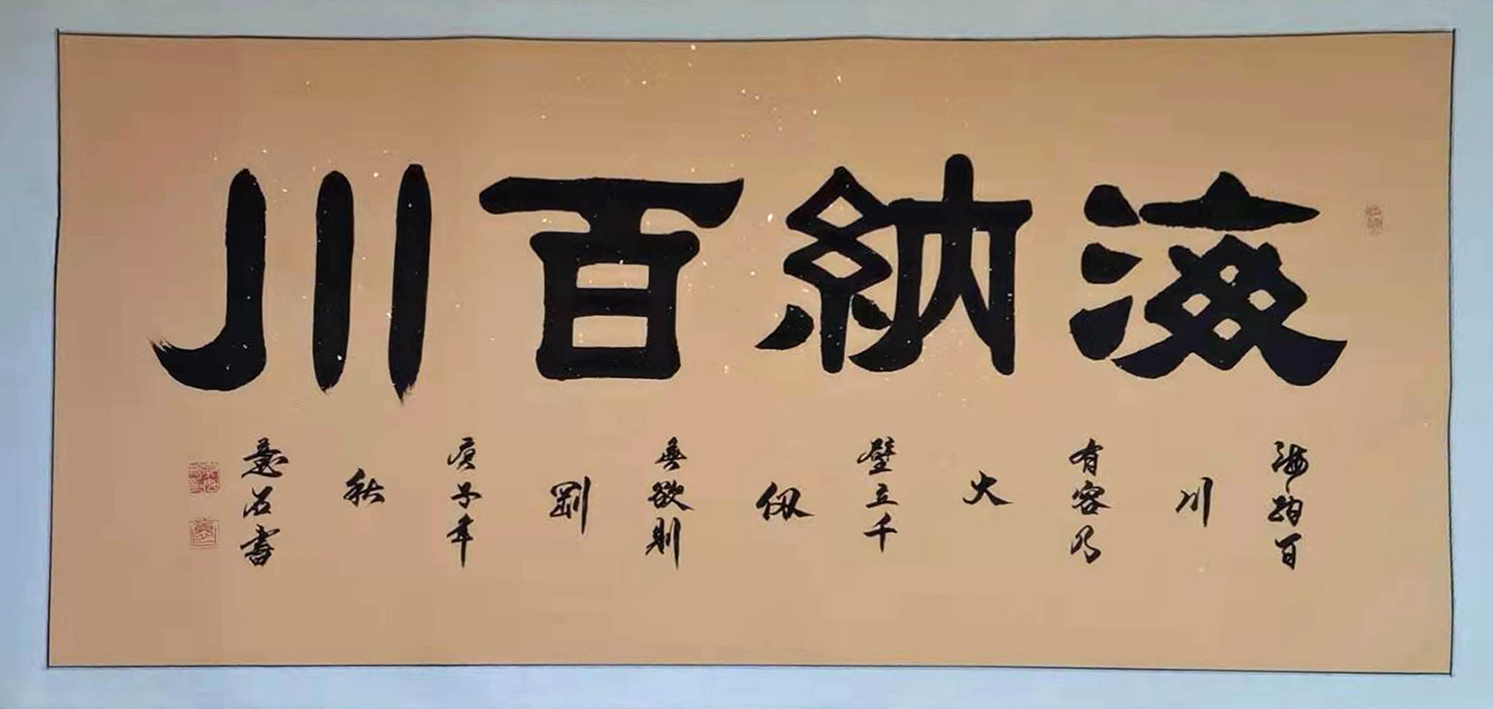 海納百川
海納百
川
有容乃
大
壁立千
仞
無欲則
剛
庚子年
秋
石書